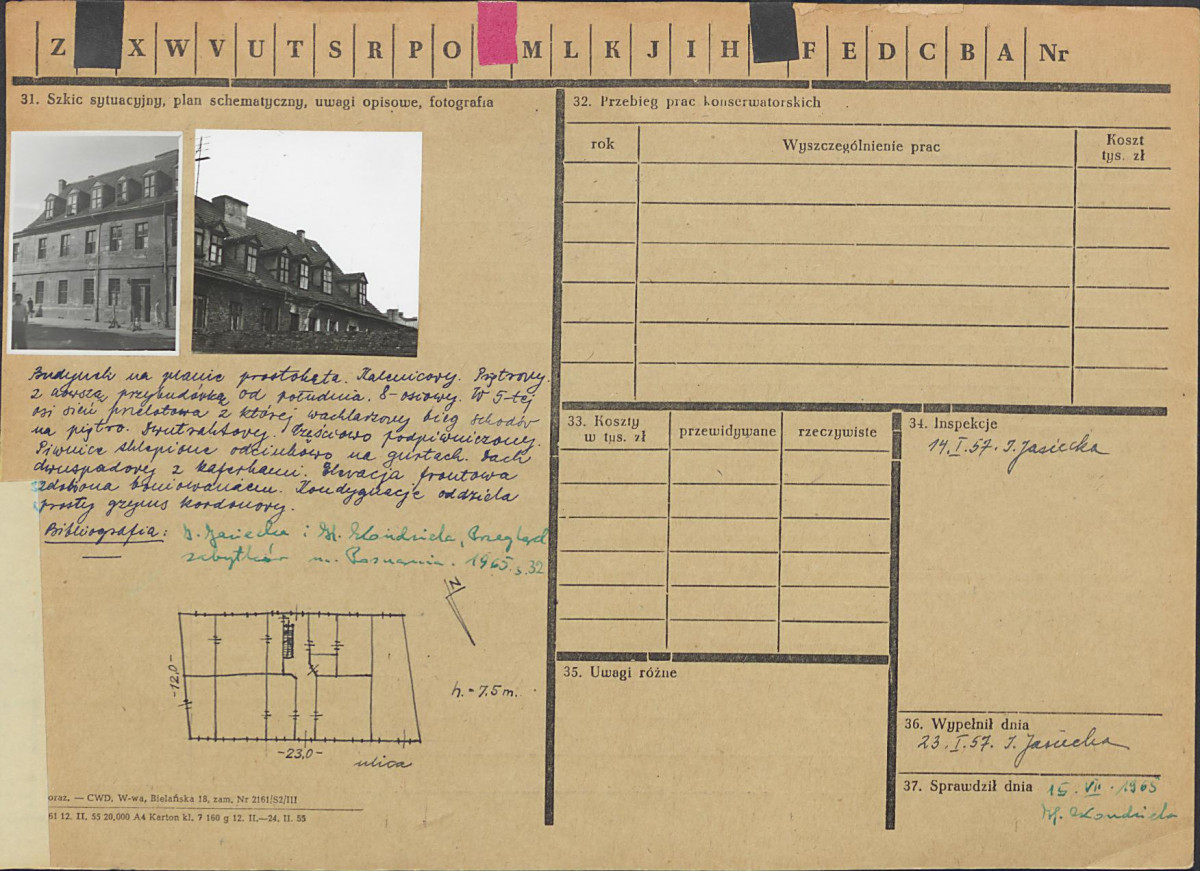 Z X W V U T S R P O M L K J I H F E D C B A Nr
31. Szkic sytuacyjny, plan schematyczny, uwagi opisowe, fotografia
Budynek na planie prostokąta. Kalenicowy. Piętrowy
z nowszą przybudówką od południa. 8-osiowy. W 5-tej
osi sień przelotowa z której wachlarzowy bieg schodów
na piętro. Dwutraktowy. Częściowo podpiwniczony.
Piwnice sklepione odcinkowo na gurtach. Dach
dwuspadowy z kaferkami. Elewacja frontowa
zdobiona boniowaniem. Kondygnacje oddziela
prosty gzyms kordonowy.
Bibliografia: I. Jasiecka i H. Kondziela, Przegląd
zabytków m. Poznania. 1965 s. 32
N
-12,0-
h. = 7.5 m.
-23,0-
ulica
oraz. — CWD, W-wa, Bielańska 18, zam. Nr 2161/S2/III
61 12. II. 55 20,000 A4 Karton kl. 7 160 g 12. II.—24. II. 55
32. Przebieg prac konserwatorskich
rok Wyszczególnienie prac Koszt
tys. zł
33. Koszty
w tys. zł przewidywane rzeczywiste
34. Inspekcje
14. I. 57. I. Jasiecka
35. Uwagi różne
36. Wypełnił dnia
23. I. 57. I. Jasiecka
37. Sprawdził dnia 15. VII. 1965
H. Kondziela